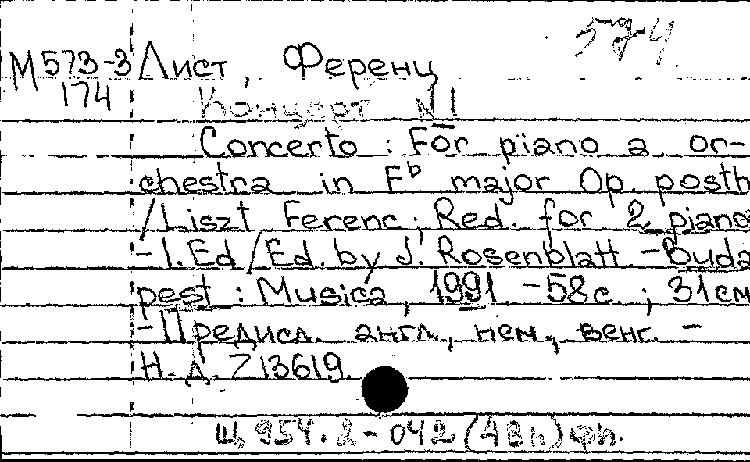 57-4
М573-3 Лист, Ференц
174
Концерт N1
Concerto : For piano a or-
chestra in F♭ major Op. posth
/ Liszt Ferenc; Red. for 2 piano
-1. Ed / Ed. by J. Rosenblatt - Buda
pest : Musica, 1991. - 58 с. ; 31 см
- Предисл. англ., нем., венг. -
Н. Д. Z 13619.
Щ 954.2-042 (4Вн) фп.